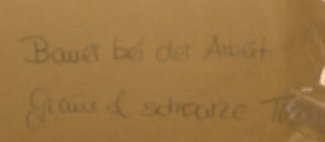 Bauer bei der Arbeit
Grau & schwarze